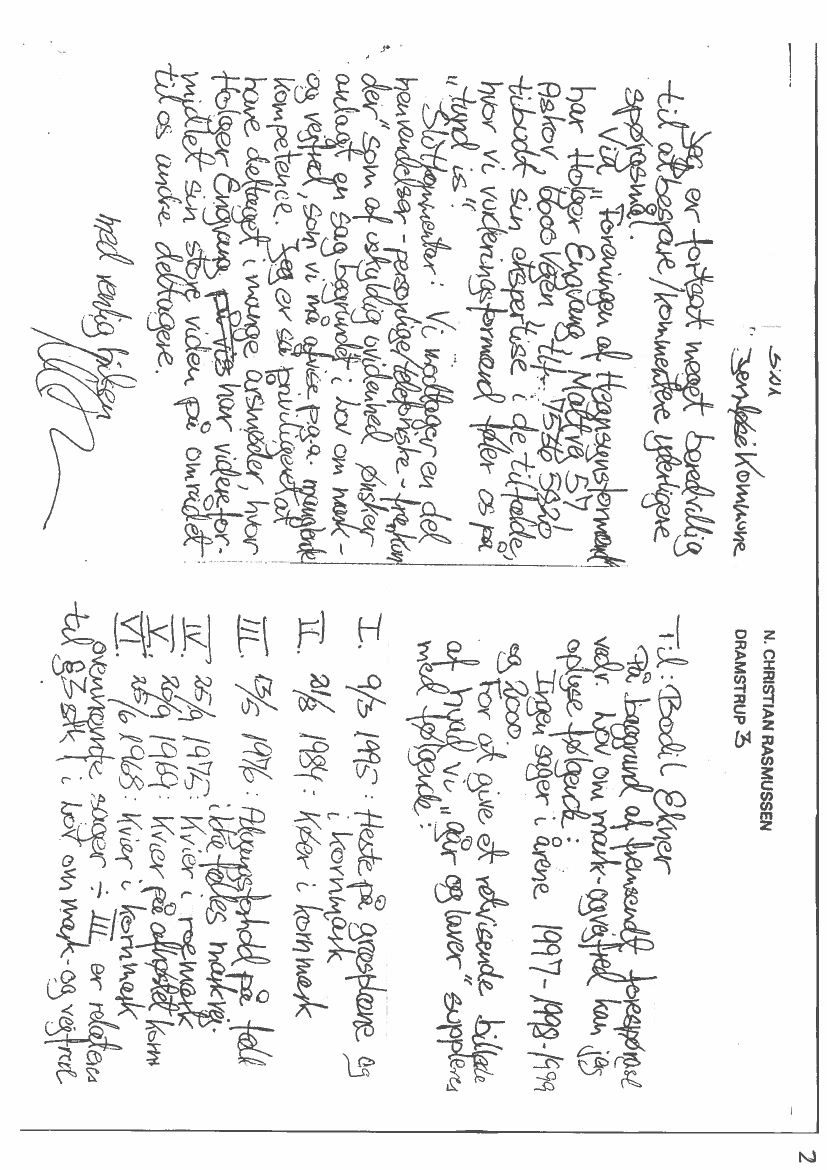 N. CHRISTIAN RASMUSSEN
DRAMSTRUP 3
Til: Bodil Ekner
På baggrund af fremsendt forespørgsel
vedr. lov om mark- og vejfred kan jeg
oplyse følgende:
Ingen sager i årene 1997-1998-1999
og 2000.
For at give et retvisende billede
af hvad vi "går og laver" suppleres
med følgende:
I. 9/3 1995: Heste på græsplæne og
i kornmark
II. 21/8 1984: Køer i kornmark
III. 13/5 1976: Adgangsforhold på fælles
ikke fælles markvej.
IV. 25/9 1975: Kvier i roemark
V. 20/9 1969: Kvier på afhøstet korn
VI. 25/6 1968: Kvier i kornmark
ovennævnte sager ÷ III er relateres
til § 3 stk 1 i lov om mark- og vejfred
Jernløse Kommune
Jeg er fortsat meget beredvillig
til at besvare/kommentere yderligere
spørgsmål.
Via "Foreningen af Hegnsynsformænd
har Holger Engvang, Maltvej 57
Askov 6600 Vejen tlf. 7536 5820
tilbudt sin ekspertise i de tilfælde,
hvor vi vurderingsformænd føler os på
"tynd is".
Slutkommentar: Vi modtager en del
henvendelser - personlige/telefoniske - fra
der som af uskyldig uvidenhed ønsker
anlagt en sag begrundet i lov om mark-
og vejfred, som vi må afvise p.g.a. manglende
kompetence. Jeg er så priviligeret at
have deltaget i mange årsmøder, hvor
Holger Engvang har viderefor-
midlet sin store viden på området
til os andre deltagere.
med venlig hilsen
2